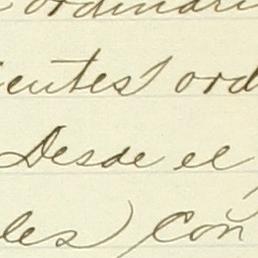 ordinari
ientes) ord
Desde el
les) Con